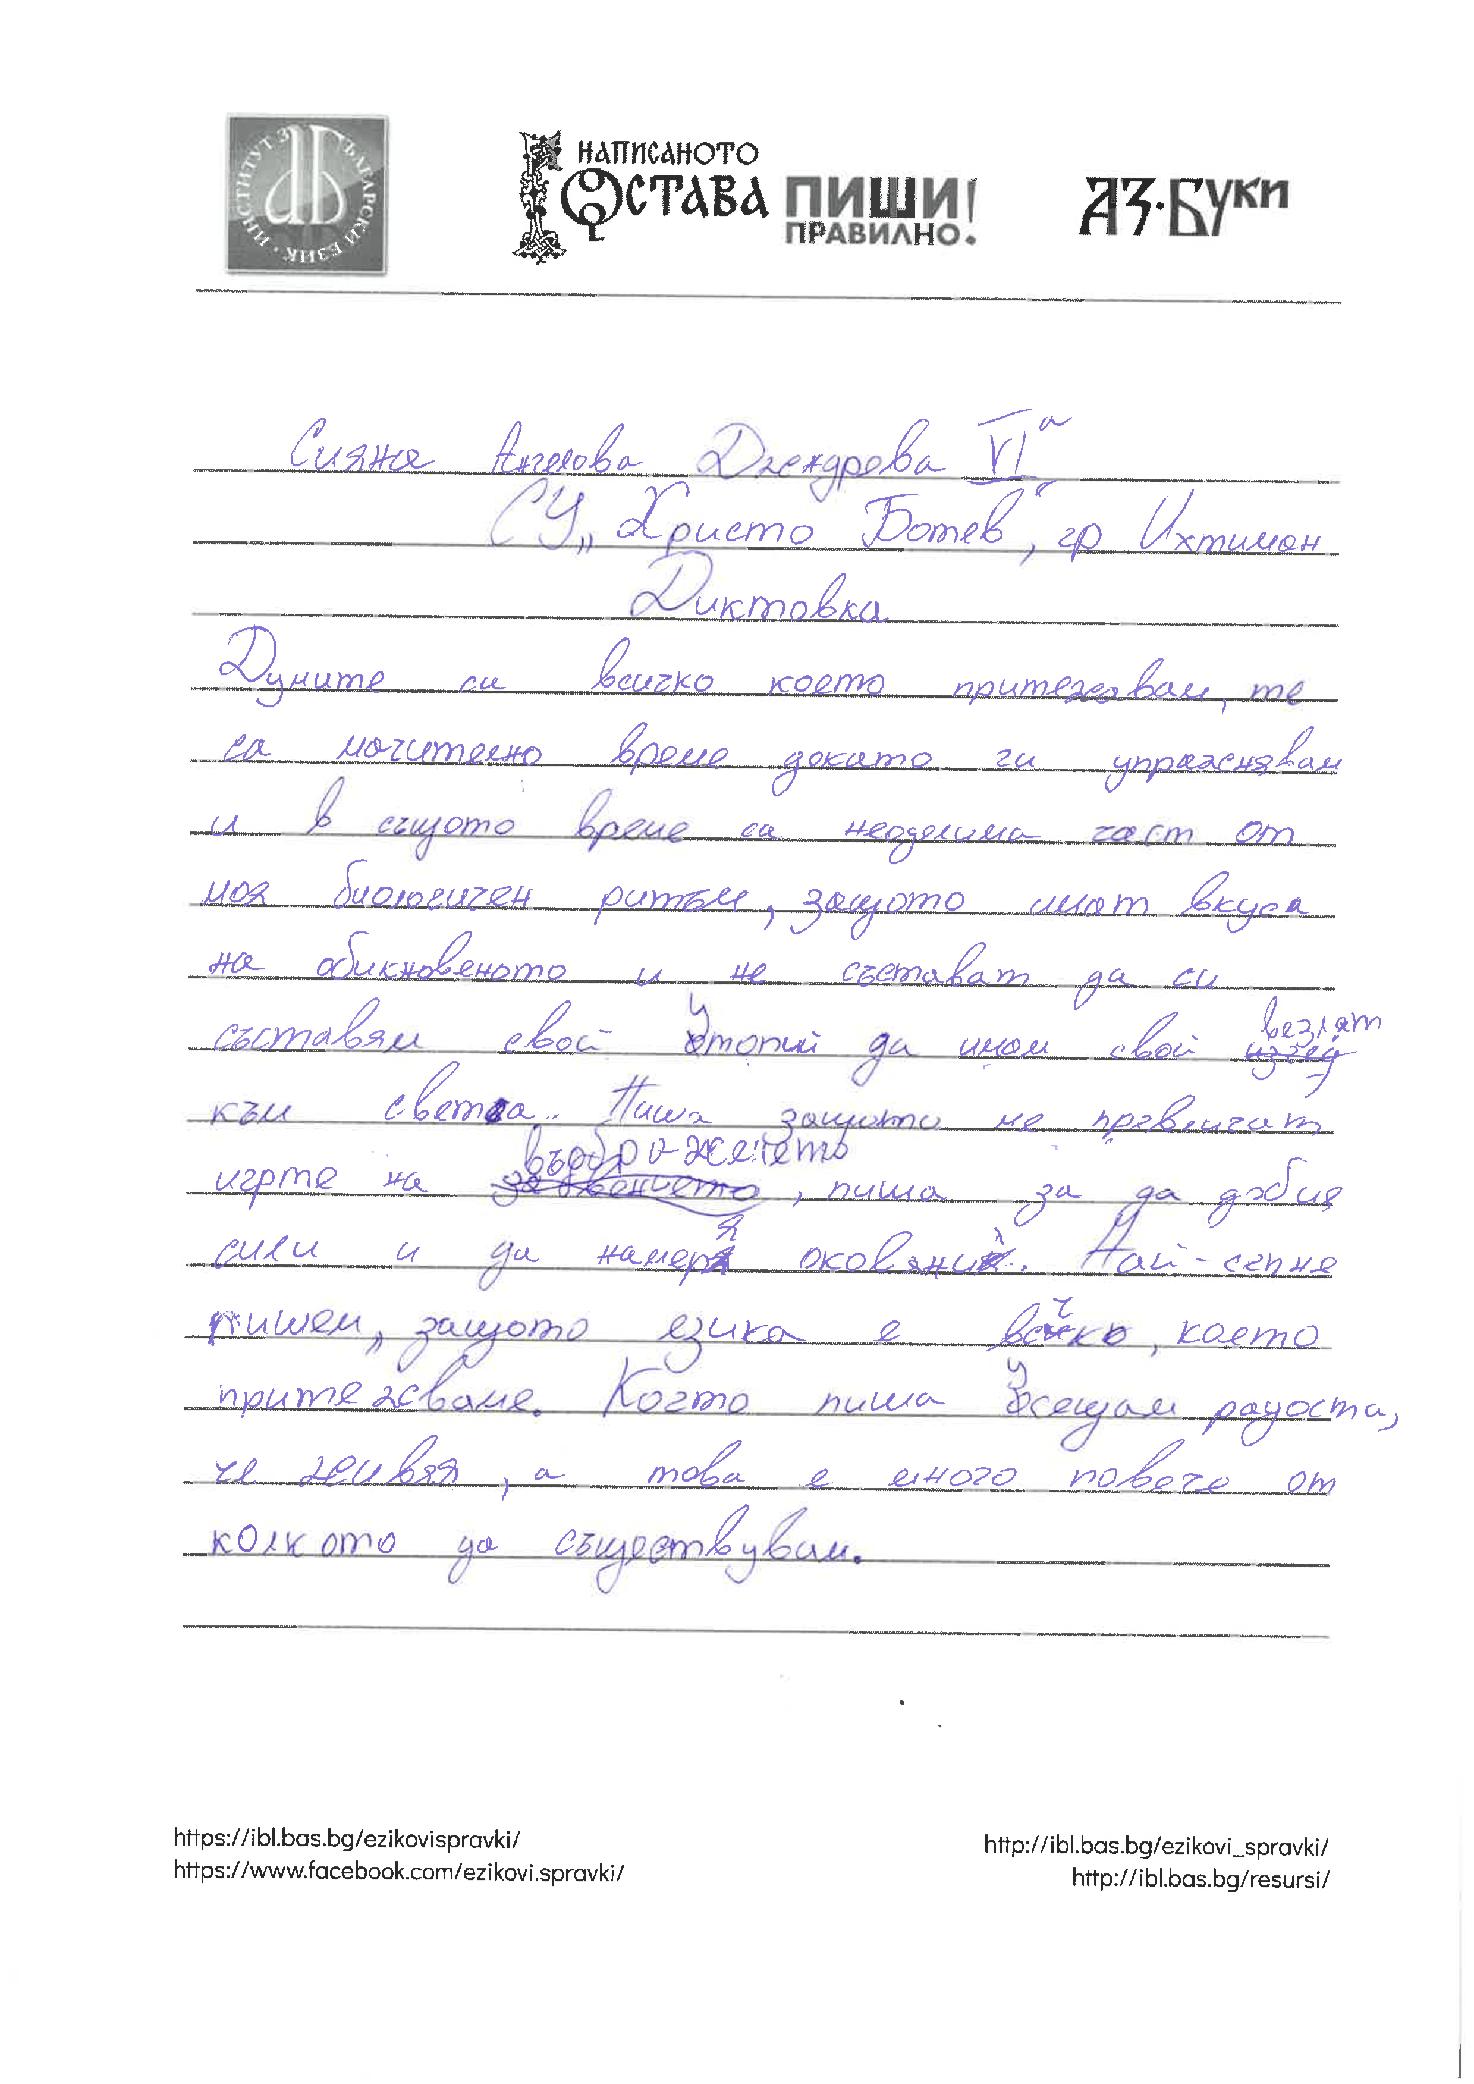 ИНСТИТУТ ЗА БЪЛГАРСКИ ЕЗИК
НАПИСАНОТО
ОСТАВА ПИШИ!
ПРАВИЛНО.
АЗ·БУКИ
Сияна Ангелова Джендрева VIа
СУ „Христо Ботев", гр Ихтиман
Диктовка
Думите си всичко което притежавам, те
са мочително време докато ги упражснявам
и в същото време са неоделима част от
моя биологичен ритъм, защото имат вкуса
на обикновеното и не състават да си
съставям свой утопий да имам свой везлят
към света. Пиша защото ме превличат
игрте на въображенето, пиша за да добие
сили и да намеря оковани. Най-сепне
пишем, защото езика е всчко, което
притежсваме. Когто пиша усещам радоста,
че живяя, а това е много повече от
колкото да съществувам.
https://ibl.bas.bg/ezikovispravki/
https://www.facebook.com/ezikovi.spravki/
http://ibl.bas.bg/ezikovi_spravki/
http://ibl.bas.bg/resursi/